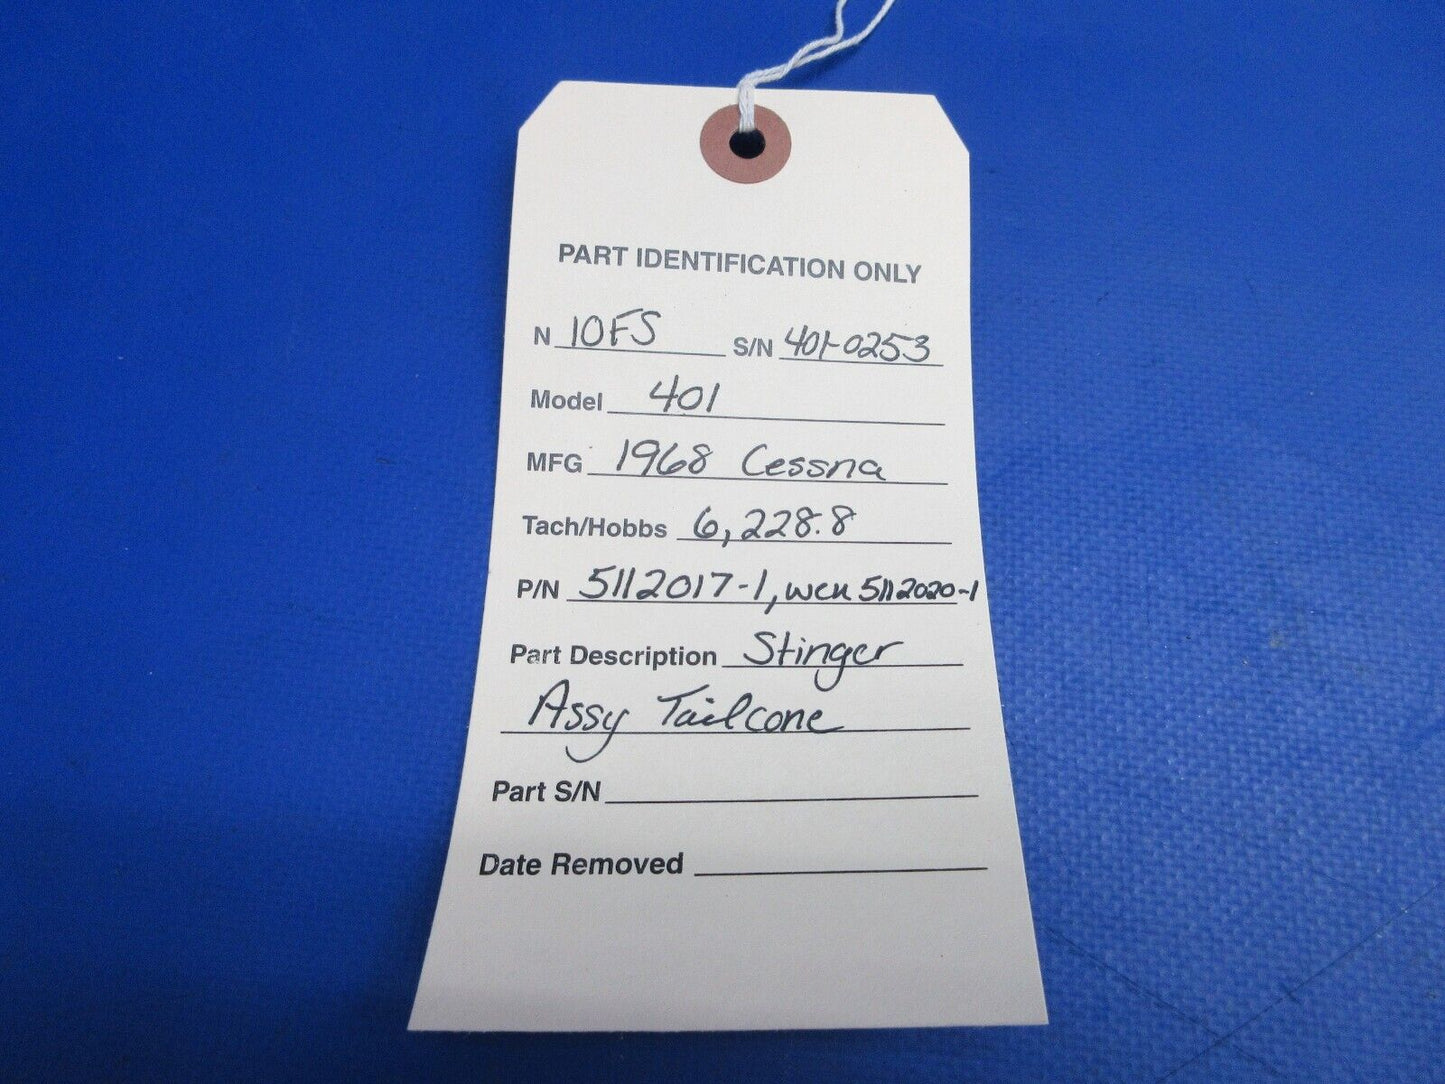 PART IDENTIFICATION ONLY
N 10FS S/N 401-0253
Model 401
MFG 1968 Cessna
Tach/Hobbs 6,228.8
P/N 5112017-1, wck 5112020-1
Part Description Stinger
Assy Tailcone
Part S/N
Date Removed